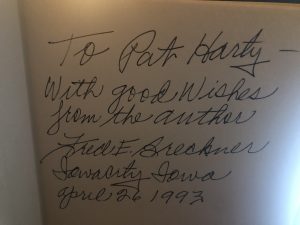 To Pat Harty –
With good Wishes
from the author
Fred E. Breckner
Iowa City Iowa
April 26 1993